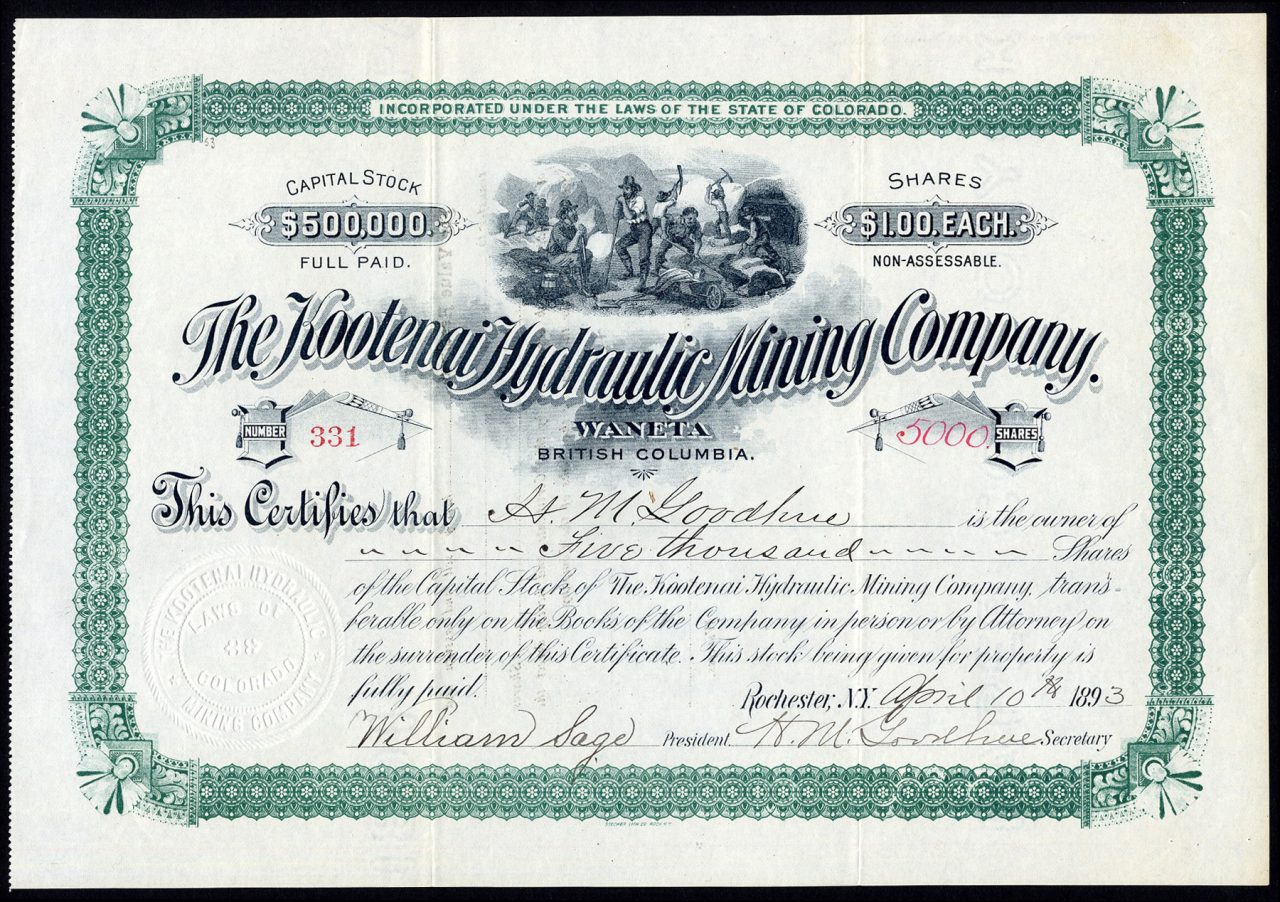 INCORPORATED UNDER THE LAWS OF THE STATE OF COLORADO.
53
CAPITAL STOCK
$500,000.
FULL PAID.
SHARES
$1.00. EACH.
NON-ASSESSABLE.
The Kootenai Hydraulic Mining Company.
NUMBER 331
WANETA
BRITISH COLUMBIA.
5000 SHARES
This Certifies that H. M. Goodhue is the owner of
Five thousand Shares
of the Capital Stock of The Kootenai Hydraulic Mining Company, trans-
ferable only on the Books of the Company in person or by Attorney on
the surrender of this Certificate. This stock being given for property is
fully paid.
Rochester, N.Y. April 10th 1893
William Sage President. H. M. Goodhue Secretary
THE KOOTENAI HYDRAULIC
MINING COMPANY
LAWS OF
COLORADO
STECHER LITH. CO. ROCH. N.Y.